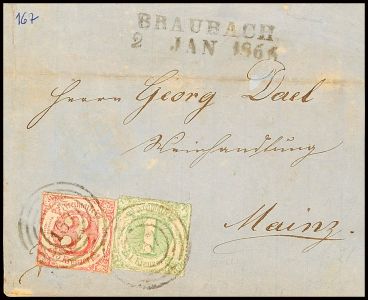 167
BRAUBACH
2 JAN 186
Herrn Georg Dael
Weinhandlung
Mainz.
168
1